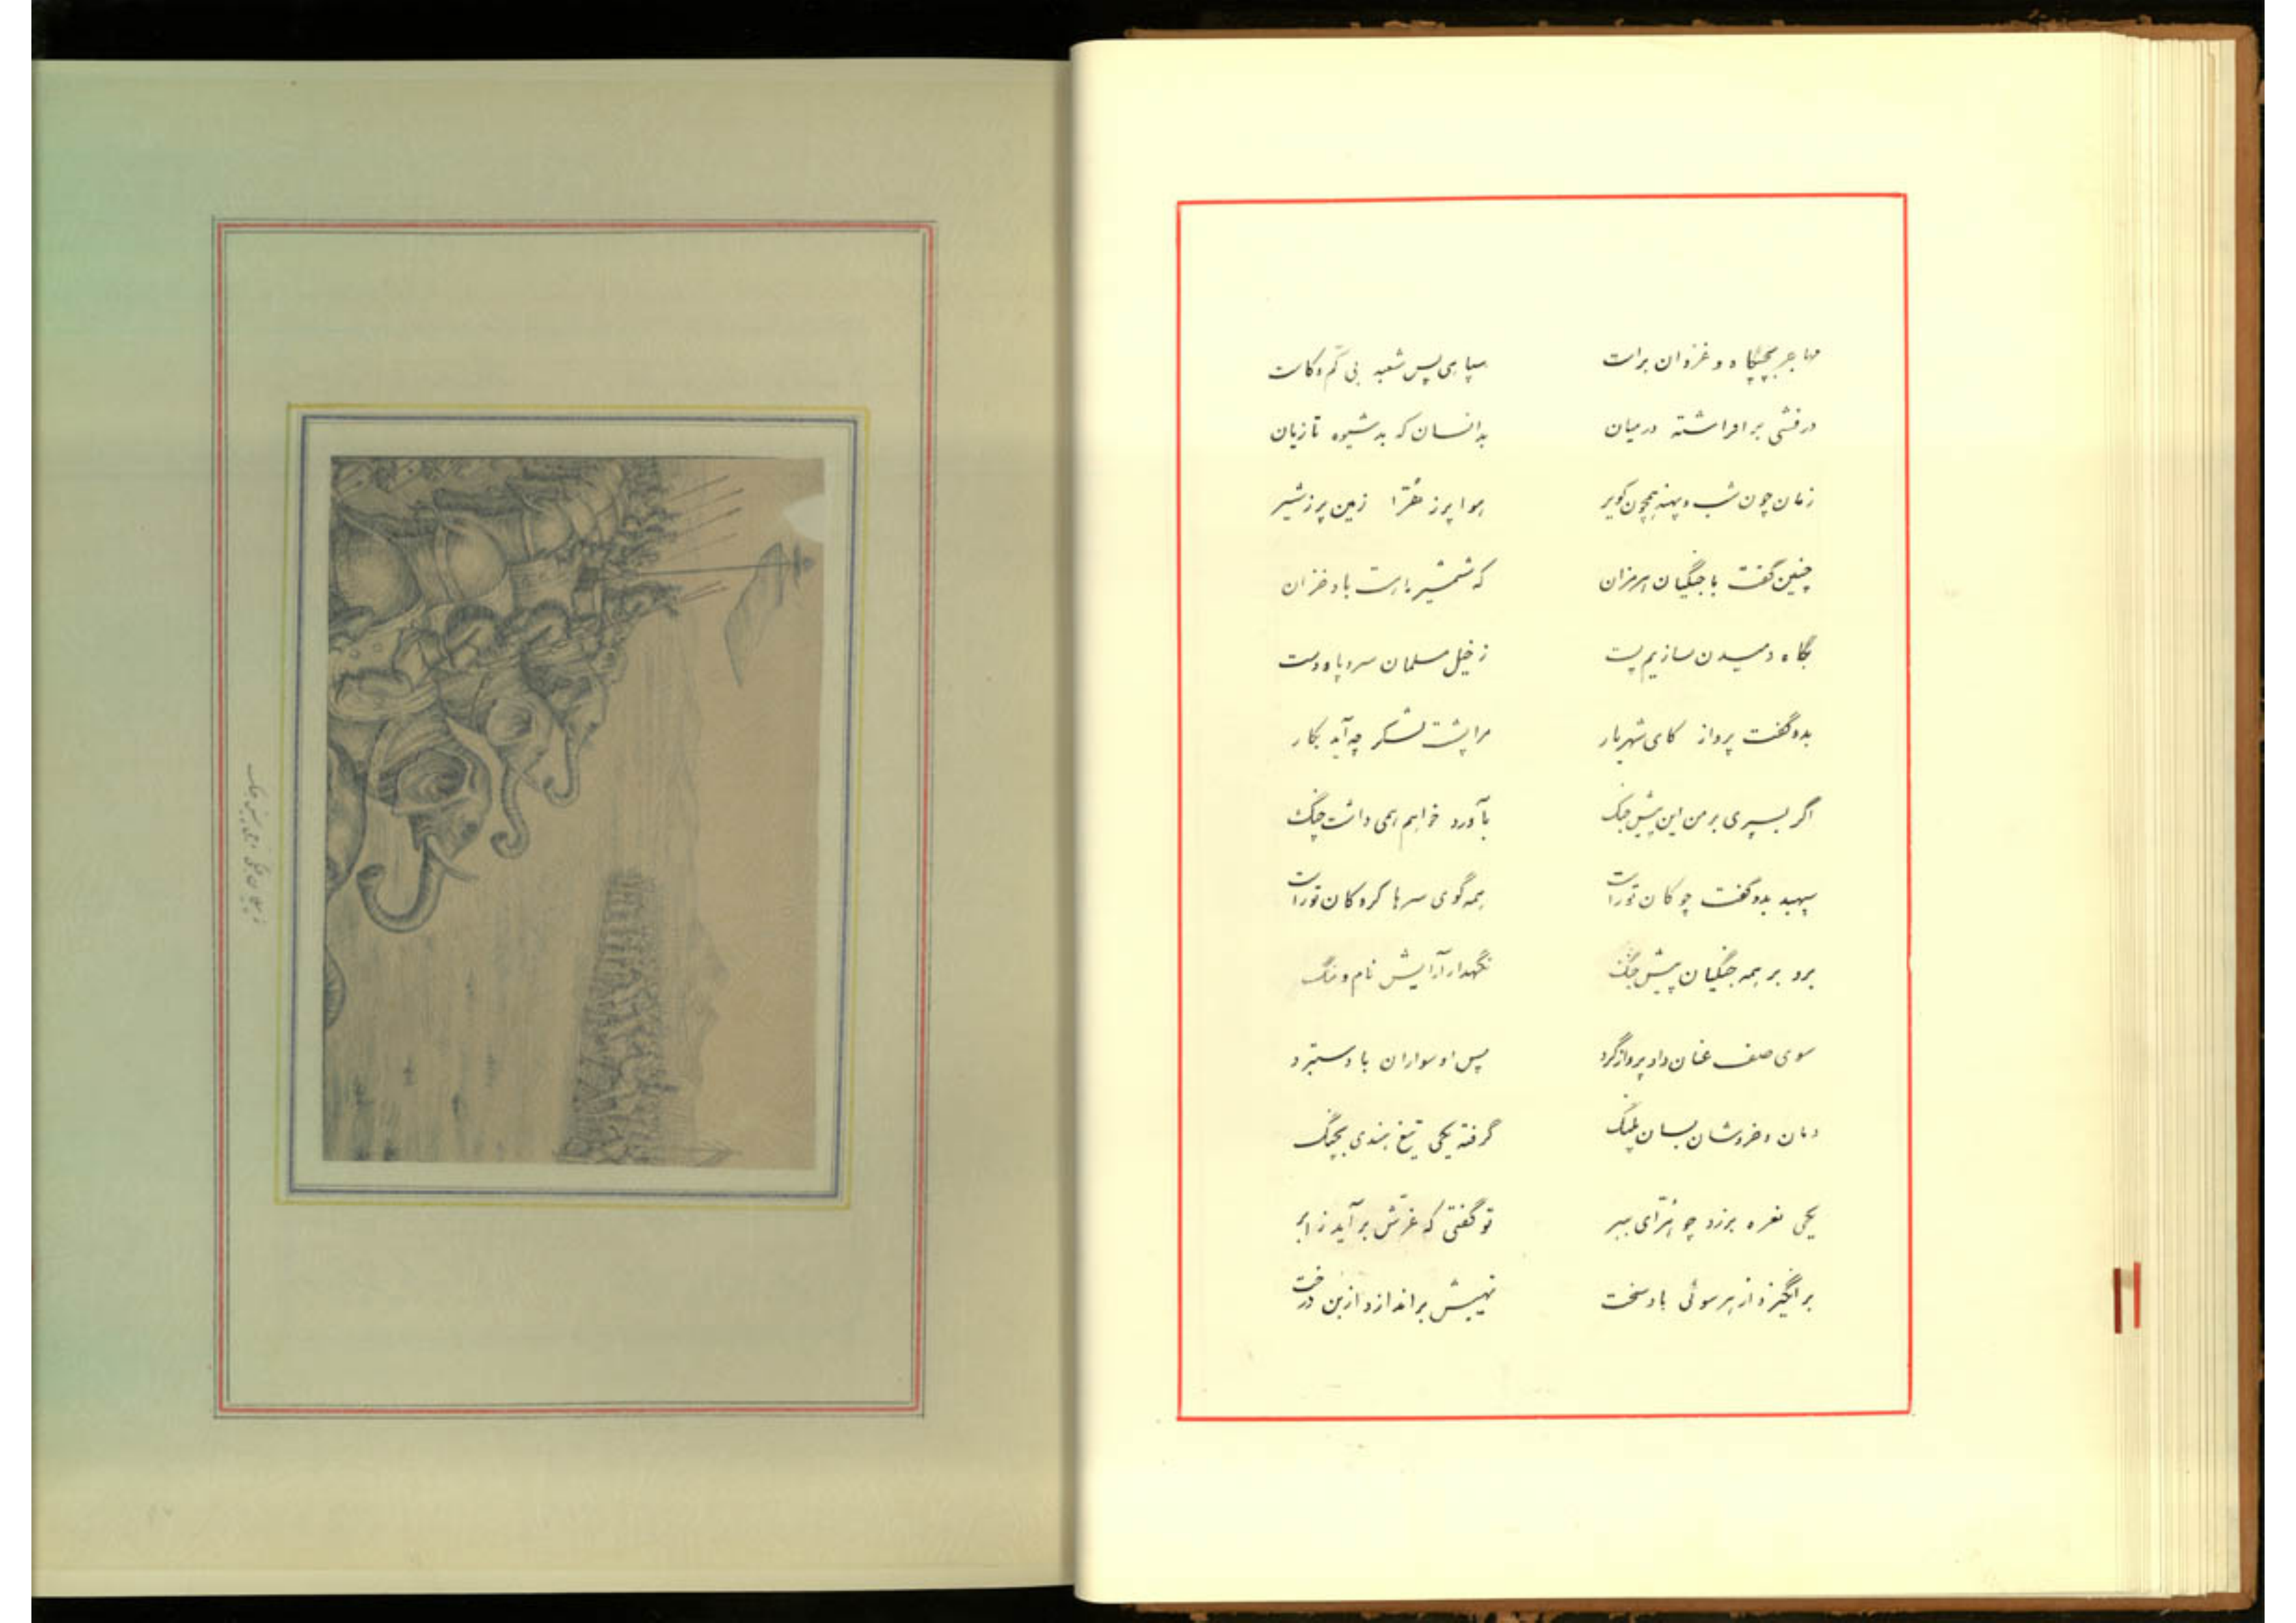 مهاجر بچپگاه و غزوان براست سپاهی پس شعبه بی کم و کاست
درفشی برافراشته در میان بدانسان که بد شیوه تازیان
زمان چون شب و پهنه همچون کویر هوا پر ز هُرّا زمین پر ز شیر
چنین گفت با جنگیان هرمزان که شمشیر ما هست باد خزان
بگاه دمیدن سازیم پست ز خیل مسلمان سر و پا و دست
بدو گفت پرواز کای شهریار مرا پشت لشکر چه آید بکار
اگر بسپری بر من این پیش جنگ بآورد خواهم همی داشت چنگ
سپهبد بدو گفت چوکان تراست همه گوی سرها کروکان تراست
برو بر همه جنگیان پیش جنگ نگهدار آرایش نام و ننگ
سوی صف عنان داد پرواز گرد پس او سواران با دستبرد
دمان و خروشان بسان پلنگ گرفته یکی تیغ هندی بچنگ
یکی نعره برزد چو هُرّای ببر تو گفتی که غرش برآید ز ابر
برانگیزد از هر سوئی باد سخت نهیبش براندازد از بن درخت